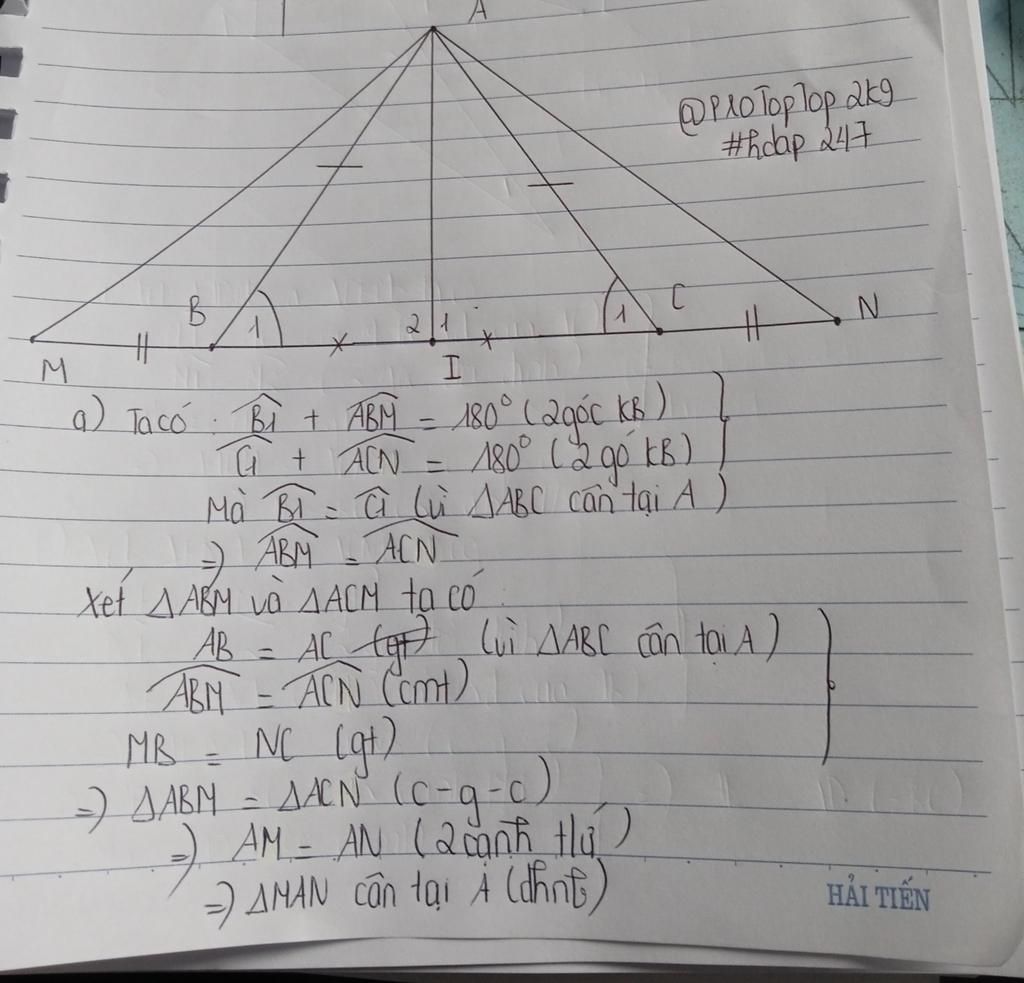 A
@PROTopTop2k9
#hdap 247
B 1 2 1 1 C N
M I
a) Ta có : B1 + ABM = 180° (2 góc KB)
C1 + ACN = 180° (2 gó KB)
Mà B1 = C1 (vì ΔABC cân tại A)
=> ABM = ACN
Xét ΔABM và ΔACM ta có :
AB = AC (gt) (vì ΔABC cân tại A)
ABM = ACN (cmt)
MB = NC (gt)
=> ΔABM = ΔACN (c-g-c)
=> AM = AN (2 cạnh tứ)
=> ΔMAN cân tại A (dhnb)
HẢI TIẾN